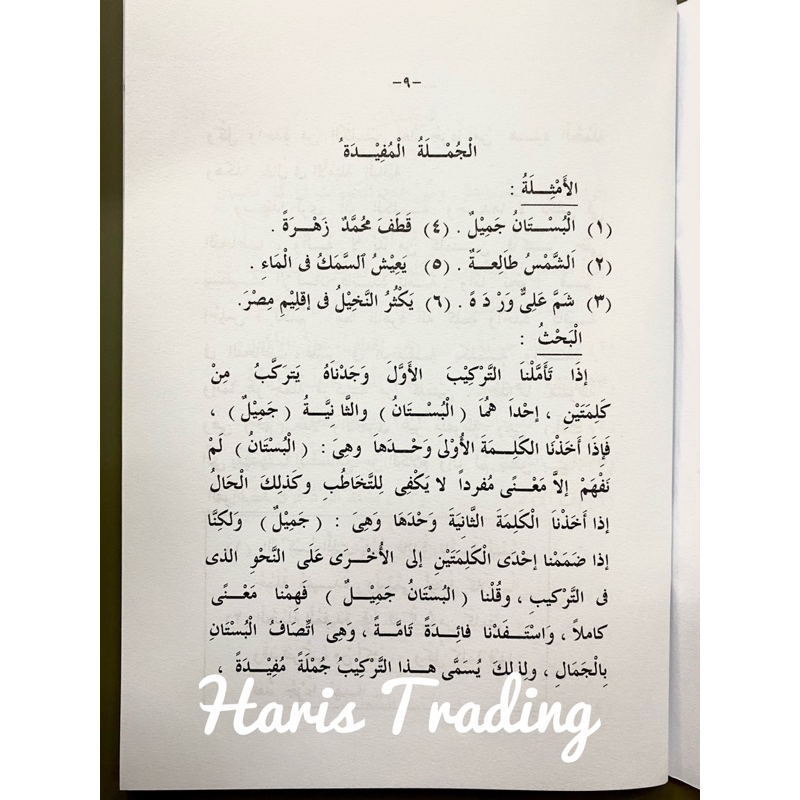 -٩-
الْجُمْـلَةُ الْمُفِيْـدَةُ
الأَمْثِـلَةُ :
(١) الْبُسْـتَانُ جَمِيْلٌ . (٤) قَطَفَ مُحَمَّدٌ زَهْـرَةً .
(٢) اَلشَّمْسُ طَالِعَـةٌ . (٥) يَعِيْشُ السَّمَكُ فى الْمَاءِ .
(٣) شَمَّ عَلِىٌّ وَرْدَةً . (٦) يَكْثُرُ النَّخِيْلُ فى إقْلِيْمِ مِصْرَ.
الْبَحْثُ :
إذَا تَأَمَّلْنَا التَّرْكِيْبَ الأَوَّلَ وَجَدْنَاهُ يَتَرَكَّبُ مِنْ
كَلِمَتَيْنِ ، إحْدَاهُمَا (الْبُسْـتَانُ) والثَّانِيَّـةُ (جَمِيْلٌ) ،
فَإِذَا أَخَذْنَا الكَلِمَةَ الأُوْلىَ وَحْـدَهَا وهِىَ : (الْبُسْتَانُ) لَمْ
نَفْهَمْ إلاَّ مَعْـنًى مُفرداً لا يَكْفِى لِلتَّخَاطُبِ وكَذلِكَ الْحَالُ
إذا أَخَذْنَا الْكَلِمَةَ الثَّانِيَةَ وَحْدَهَا وَهِىَ : (جَمِيْلٌ) وَلكِنَّا
إذا ضَمَمْنا إحْدَى الْكَلِمَتَيْنِ إلى الأُخْـرَى عَلَى النَّحْوِ الذى
فى التَّرْكيبِ ، وقُلْنا (البُسْتَانُ جَمِيْـلٌ) فَهِمْنا مَعْـنًى
كاملاً ، وَاسْتَـفَدْنا فائِـدَةً تَامَّـةً ، وَهِىَ اتِّصَافُ الْبُسْتَانِ
بِالْجَمَالِ ، ولِذلكَ يُسَمَّى هـذا التَّرْكِيْبُ جُمْلَةً مُفِيْدَةً ،
Haris Trading